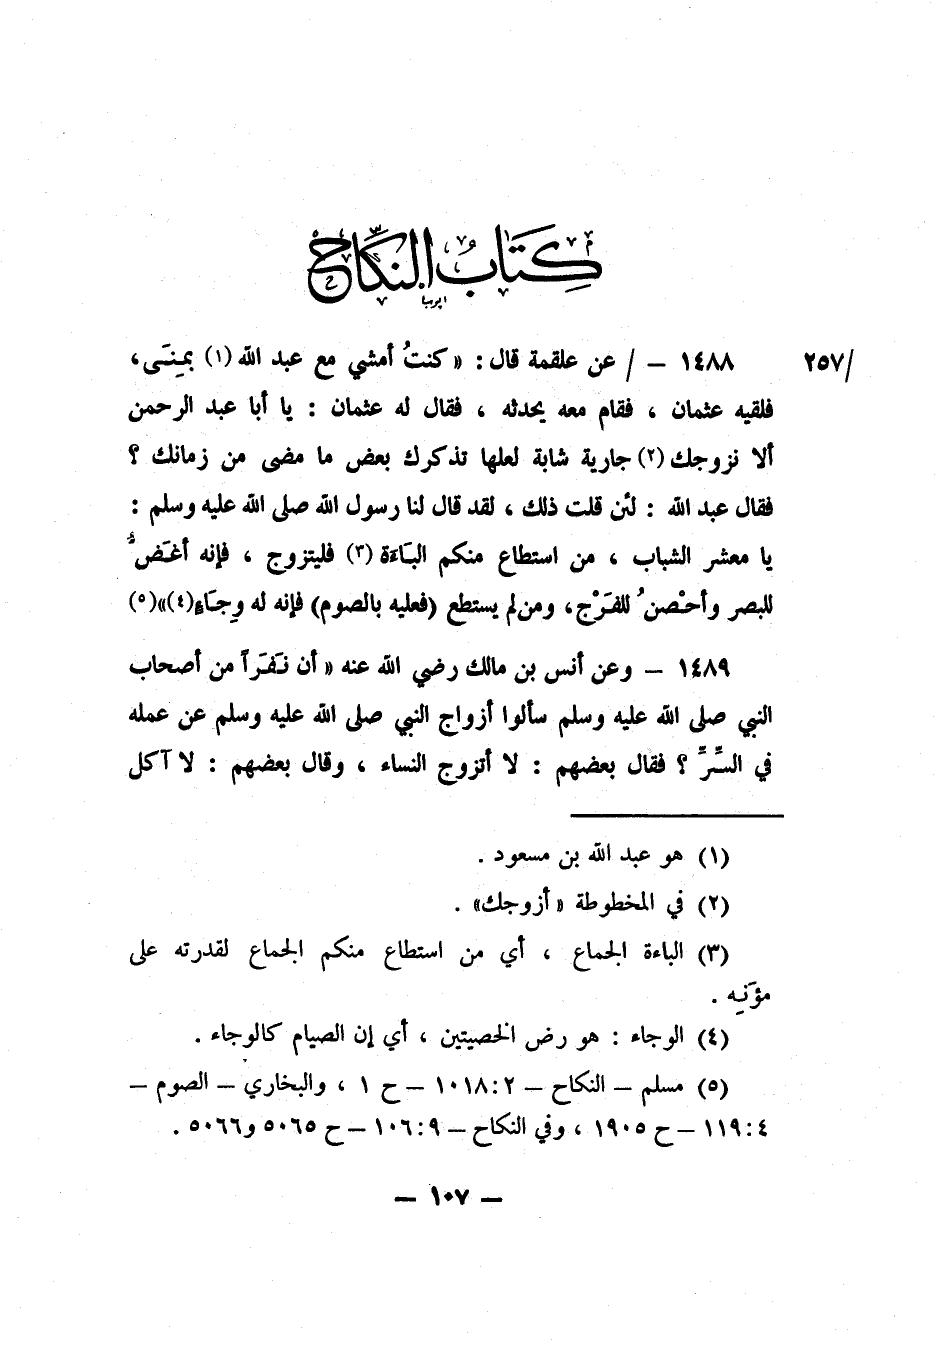 كِتَابُ النِّكَاحِ
/٢٥٧
١٤٨٨ – / عن علقمة قال : « كنتُ أمشي مع عبد الله (١) بمِنَى ،
فلقيه عثمان ، فقام معه يحدثه ، فقال له عثمان : يا أبا عبد الرحمن
ألا نزوجك (٢) جارية شابة لعلها تذكرك بعض ما مضى من زمانك ؟
فقال عبد الله : لئن قلت ذلك ، لقد قال لنا رسول الله صلى الله عليه وسلم :
يا معشر الشباب ، من استطاع منكم البَاءَة (٣) فليتزوج ، فإنه أغَضُّ
للبصر وأحْصنُ للفَرْج ، ومن لم يستطع (فعليه بالصوم) فإنه له وِجَاء(٤)»(٥)
١٤٨٩ – وعن أنس بن مالك رضي الله عنه « أن نَفَرَاً من أصحاب
النبي صلى الله عليه وسلم سألوا أزواج النبي صلى الله عليه وسلم عن عمله
في السِّرِّ ؟ فقال بعضهم : لا أتزوج النساء ، وقال بعضهم : لا آكل
(١) هو عبد الله بن مسعود .
(٢) في المخطوطة « أزوجك» .
(٣) الباءة الجماع ، أي من استطاع منكم الجماع لقدرته على
مؤَنِه .
(٤) الوجاء : هو رض الخصيتين ، أي إن الصيام كالوجاء .
(٥) مسلم – النكاح – ١٠١٨:٢ – ح ١ ، والبخاري – الصوم –
١١٩:٤ – ح ١٩٠٥ ، وفي النكاح – ١٠٦:٩ – ح ٥٠٦٥ و٥٠٦٦ .
– ١٠٧ –